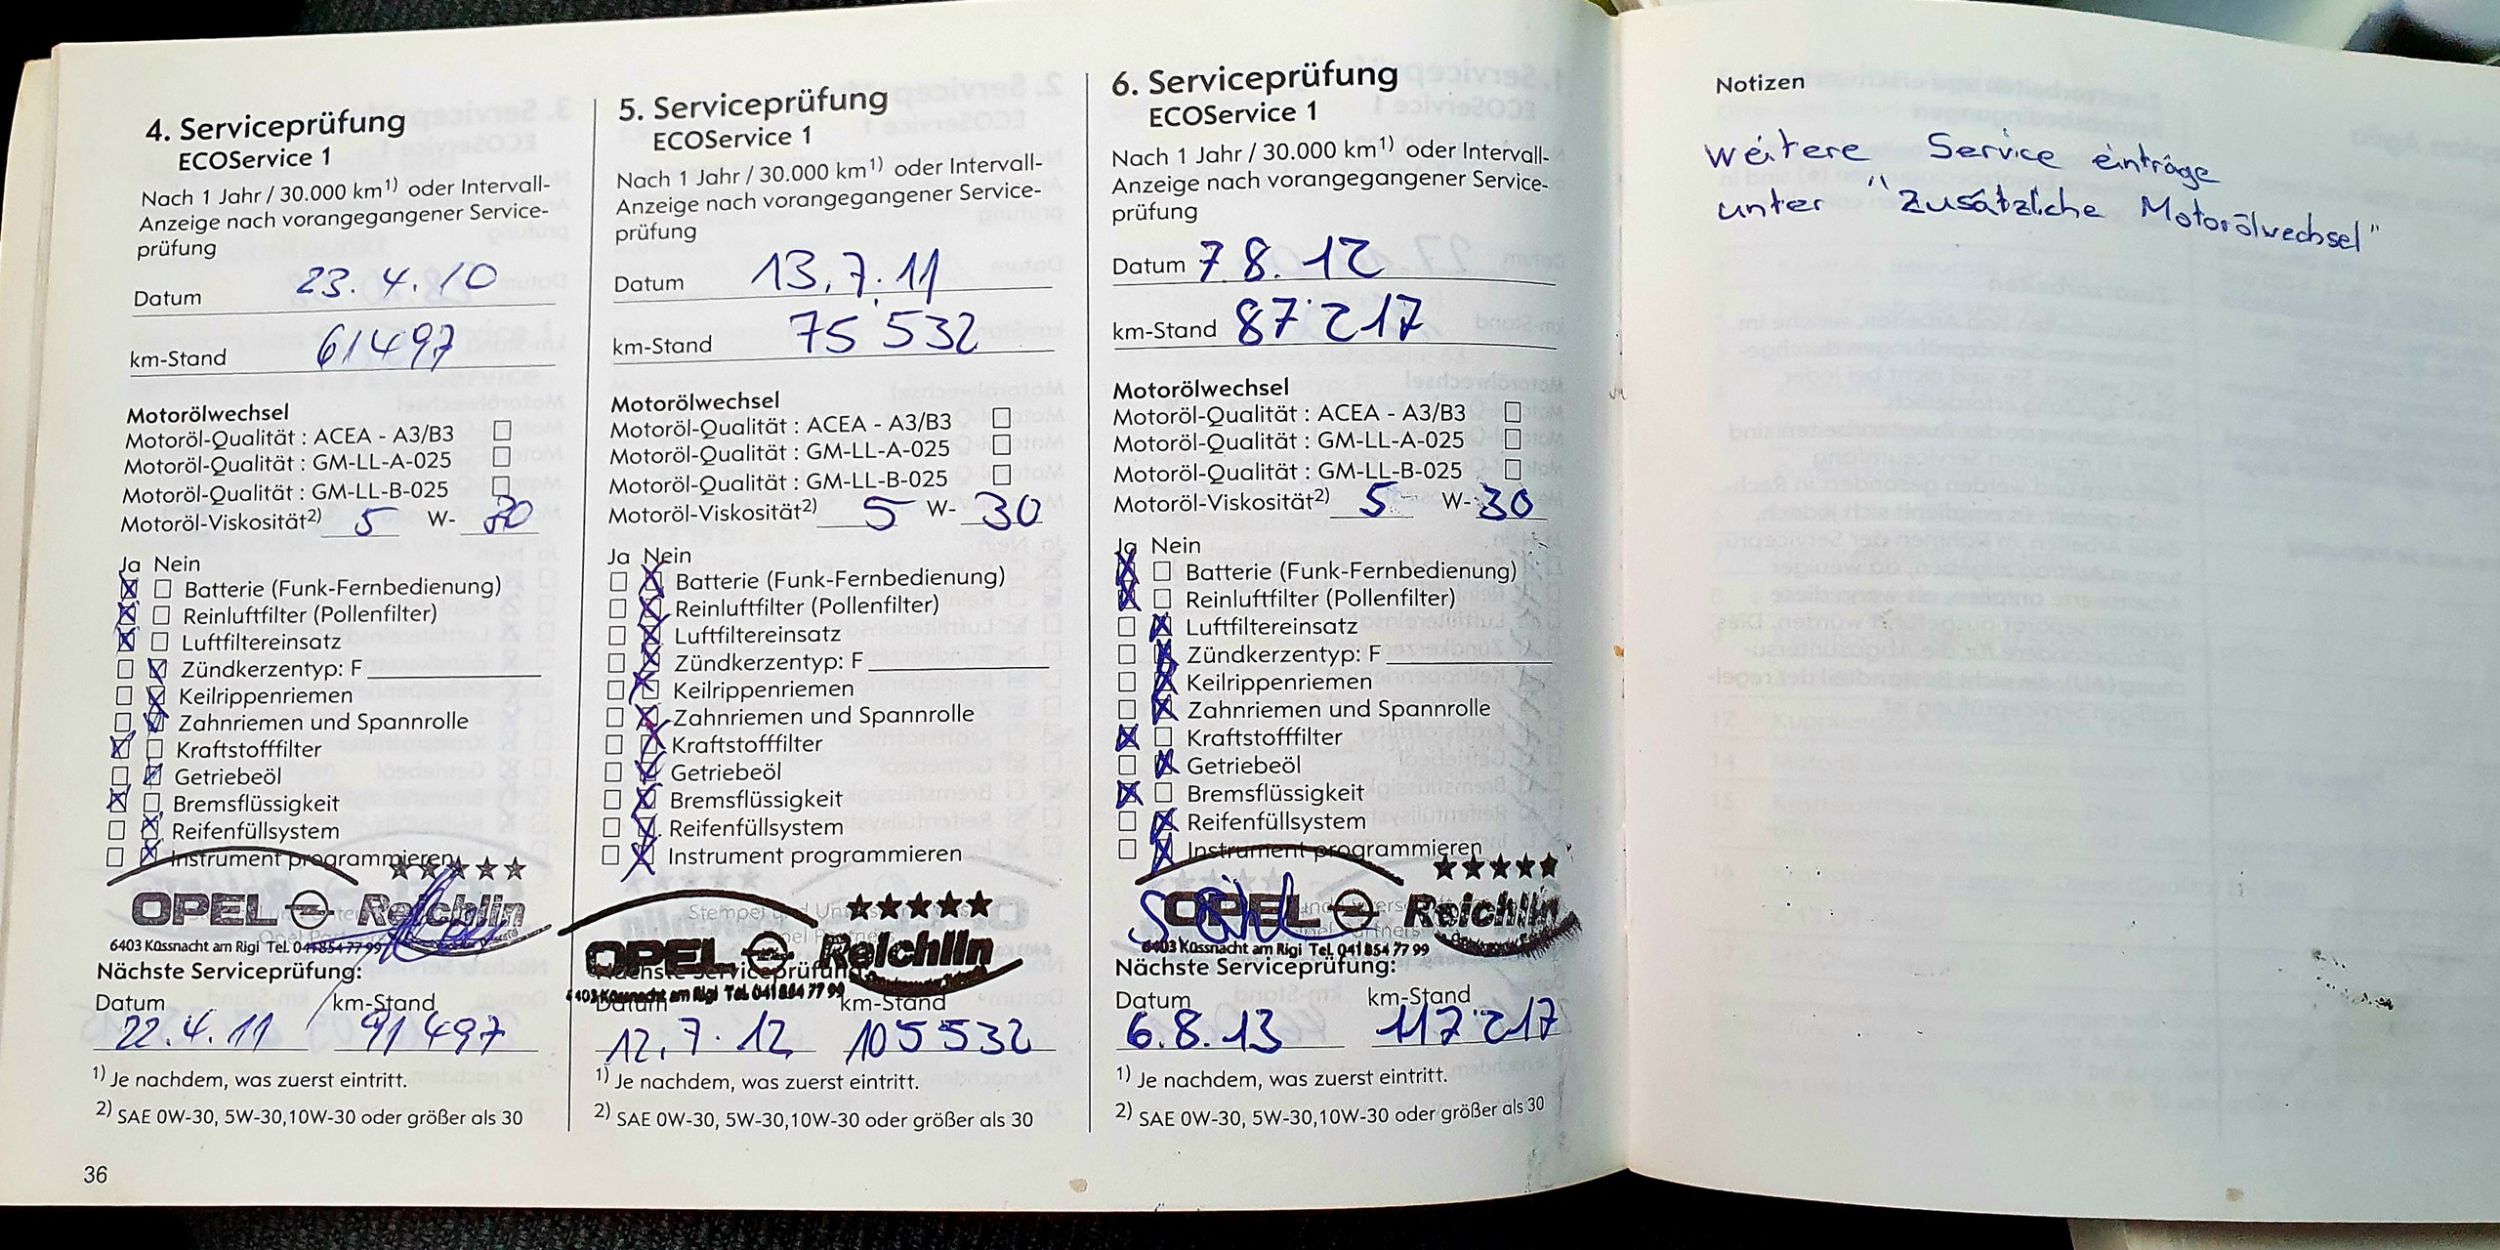 4. Serviceprüfung
ECOService 1
Nach 1 Jahr / 30.000 km1) oder Intervall-
Anzeige nach vorangegangener Service-
prüfung
Datum 23.4.10
km-Stand 61497
Motorölwechsel
Motoröl-Qualität : ACEA - A3/B3
Motoröl-Qualität : GM-LL-A-025
Motoröl-Qualität : GM-LL-B-025
Motoröl-Viskosität2) 5 W- 30
Ja Nein
Batterie (Funk-Fernbedienung)
Reinluftfilter (Pollenfilter)
Luftfiltereinsatz
Zündkerzentyp: F
Keilrippenriemen
Zahnriemen und Spannrolle
Kraftstofffilter
Getriebeöl
Bremsflüssigkeit
Reifenfüllsystem
Instrument programmieren
OPEL Reichlin
6403 Küssnacht am Rigi Tel. 041 854 77 99
Nächste Serviceprüfung:
Datum km-Stand
22.4.11 91497
1) Je nachdem, was zuerst eintritt.
2) SAE 0W-30, 5W-30,10W-30 oder größer als 30
36
5. Serviceprüfung
ECOService 1
Nach 1 Jahr / 30.000 km1) oder Intervall-
Anzeige nach vorangegangener Service-
prüfung
Datum 13.7.11
km-Stand 75 532
Motorölwechsel
Motoröl-Qualität : ACEA - A3/B3
Motoröl-Qualität : GM-LL-A-025
Motoröl-Qualität : GM-LL-B-025
Motoröl-Viskosität2) 5 W- 30
Ja Nein
Batterie (Funk-Fernbedienung)
Reinluftfilter (Pollenfilter)
Luftfiltereinsatz
Zündkerzentyp: F
Keilrippenriemen
Zahnriemen und Spannrolle
Kraftstofffilter
Getriebeöl
Bremsflüssigkeit
Reifenfüllsystem
Instrument programmieren
Stempel und
OPEL Reichlin
Nächste Serviceprüfung:
6403 Küssnacht am Rigi Tel. 041 854 77 99
Datum km-Stand
12.7.12 105532
1) Je nachdem, was zuerst eintritt.
2) SAE 0W-30, 5W-30,10W-30 oder größer als 30
6. Serviceprüfung
ECOService 1
Nach 1 Jahr / 30.000 km1) oder Intervall-
Anzeige nach vorangegangener Service-
prüfung
Datum 7 8. 12
km-Stand 87'217
Motorölwechsel
Motoröl-Qualität : ACEA - A3/B3
Motoröl-Qualität : GM-LL-A-025
Motoröl-Qualität : GM-LL-B-025
Motoröl-Viskosität2) 5 W- 30
Ja Nein
Batterie (Funk-Fernbedienung)
Reinluftfilter (Pollenfilter)
Luftfiltereinsatz
Zündkerzentyp: F
Keilrippenriemen
Zahnriemen und Spannrolle
Kraftstofffilter
Getriebeöl
Bremsflüssigkeit
Reifenfüllsystem
Instrument programmieren
OPEL Reichlin
6403 Küssnacht am Rigi Tel. 041 854 77 99
Nächste Serviceprüfung:
Datum km-Stand
6.8.13 117'217
1) Je nachdem, was zuerst eintritt.
2) SAE 0W-30, 5W-30,10W-30 oder größer als 30
Notizen
weitere Service einträge
unter "Zusätzliche Motorölwechsel"